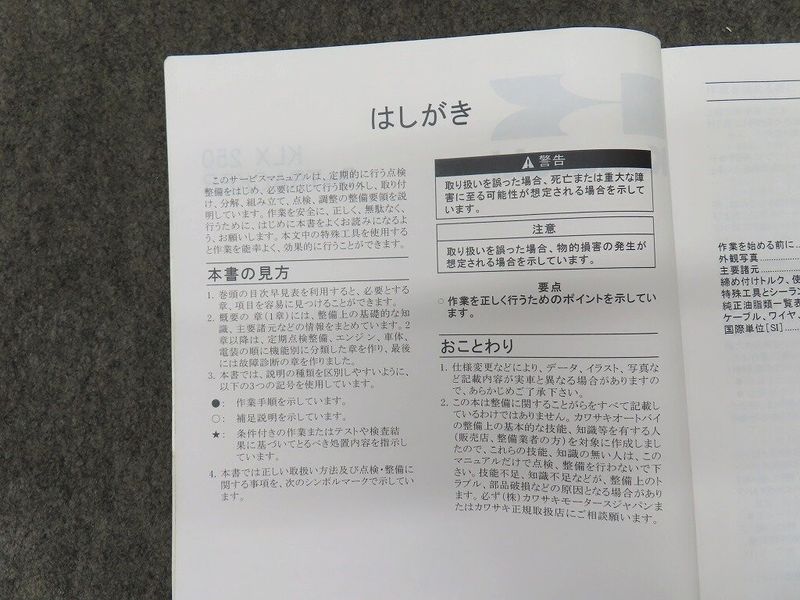 はしがき
このサービスマニュアルは、定期的に行う点検
整備をはじめ、必要に応じて行う取り外し、取り付
け、分解、組み立て、点検、調整の整備要領を説
明しています。作業を安全に、正しく、無駄なく、
行うために、はじめに本書をよくお読みになるよ
う、お願いします。本文中の特殊工具を使用する
と作業を能率よく、効果的に行うことができます。
本書の見方
1. 巻頭の目次早見表を利用すると、必要とする
章、項目を容易に見つけることができます。
2. 概要の章(1章)には、整備上の基礎的な知
識、主要諸元などの情報をまとめています。2
章以降は、定期点検整備、エンジン、車体、
電装の順に機能別に分類した章を作り、最後
には故障診断の章を作りました。
3. 本書では、説明の種類を区別しやすいように、
以下の3つの記号を使用しています。
●: 作業手順を示しています。
○: 補足説明を示しています。
★: 条件付きの作業またはテストや検査結
果に基づいてとるべき処置内容を指示し
ています。
4. 本書では正しい取扱い方法及び点検・整備に
関する事項を、次のシンボルマークで示してい
ます。
⚠警告
取り扱いを誤った場合、死亡または重大な障
害に至る可能性が想定される場合を示して
います。
注意
取り扱いを誤った場合、物的損害の発生が
想定される場合を示しています。
要点
○ 作業を正しく行うためのポイントを示してい
ます。
おことわり
1. 仕様変更などにより、データ、イラスト、写真な
ど記載内容が実車と異なる場合がありますの
で、あらかじめご了承下さい。
2. この本は整備に関することがらをすべて記載し
ているわけではありません。カワサキオートバイ
の整備上の基本的な技能、知識等を有する人
(販売店、整備業者の方)を対象に作成しまし
たので、これらの技能、知識の無い人は、この
マニュアルだけで点検、整備を行わないで下
さい。技能不足、知識不足などが、整備上のト
ラブル、部品破損などの原因となる場合があり
ます。必ず(株)カワサキモータースジャパンま
たはカワサキ正規取扱店にご相談願います。
作業を始める前に
外観写真
主要諸元
締め付けトルク、使
特殊工具とシーラン
純正油脂類一覧表
ケーブル、ワイヤ、
国際単位[SI]